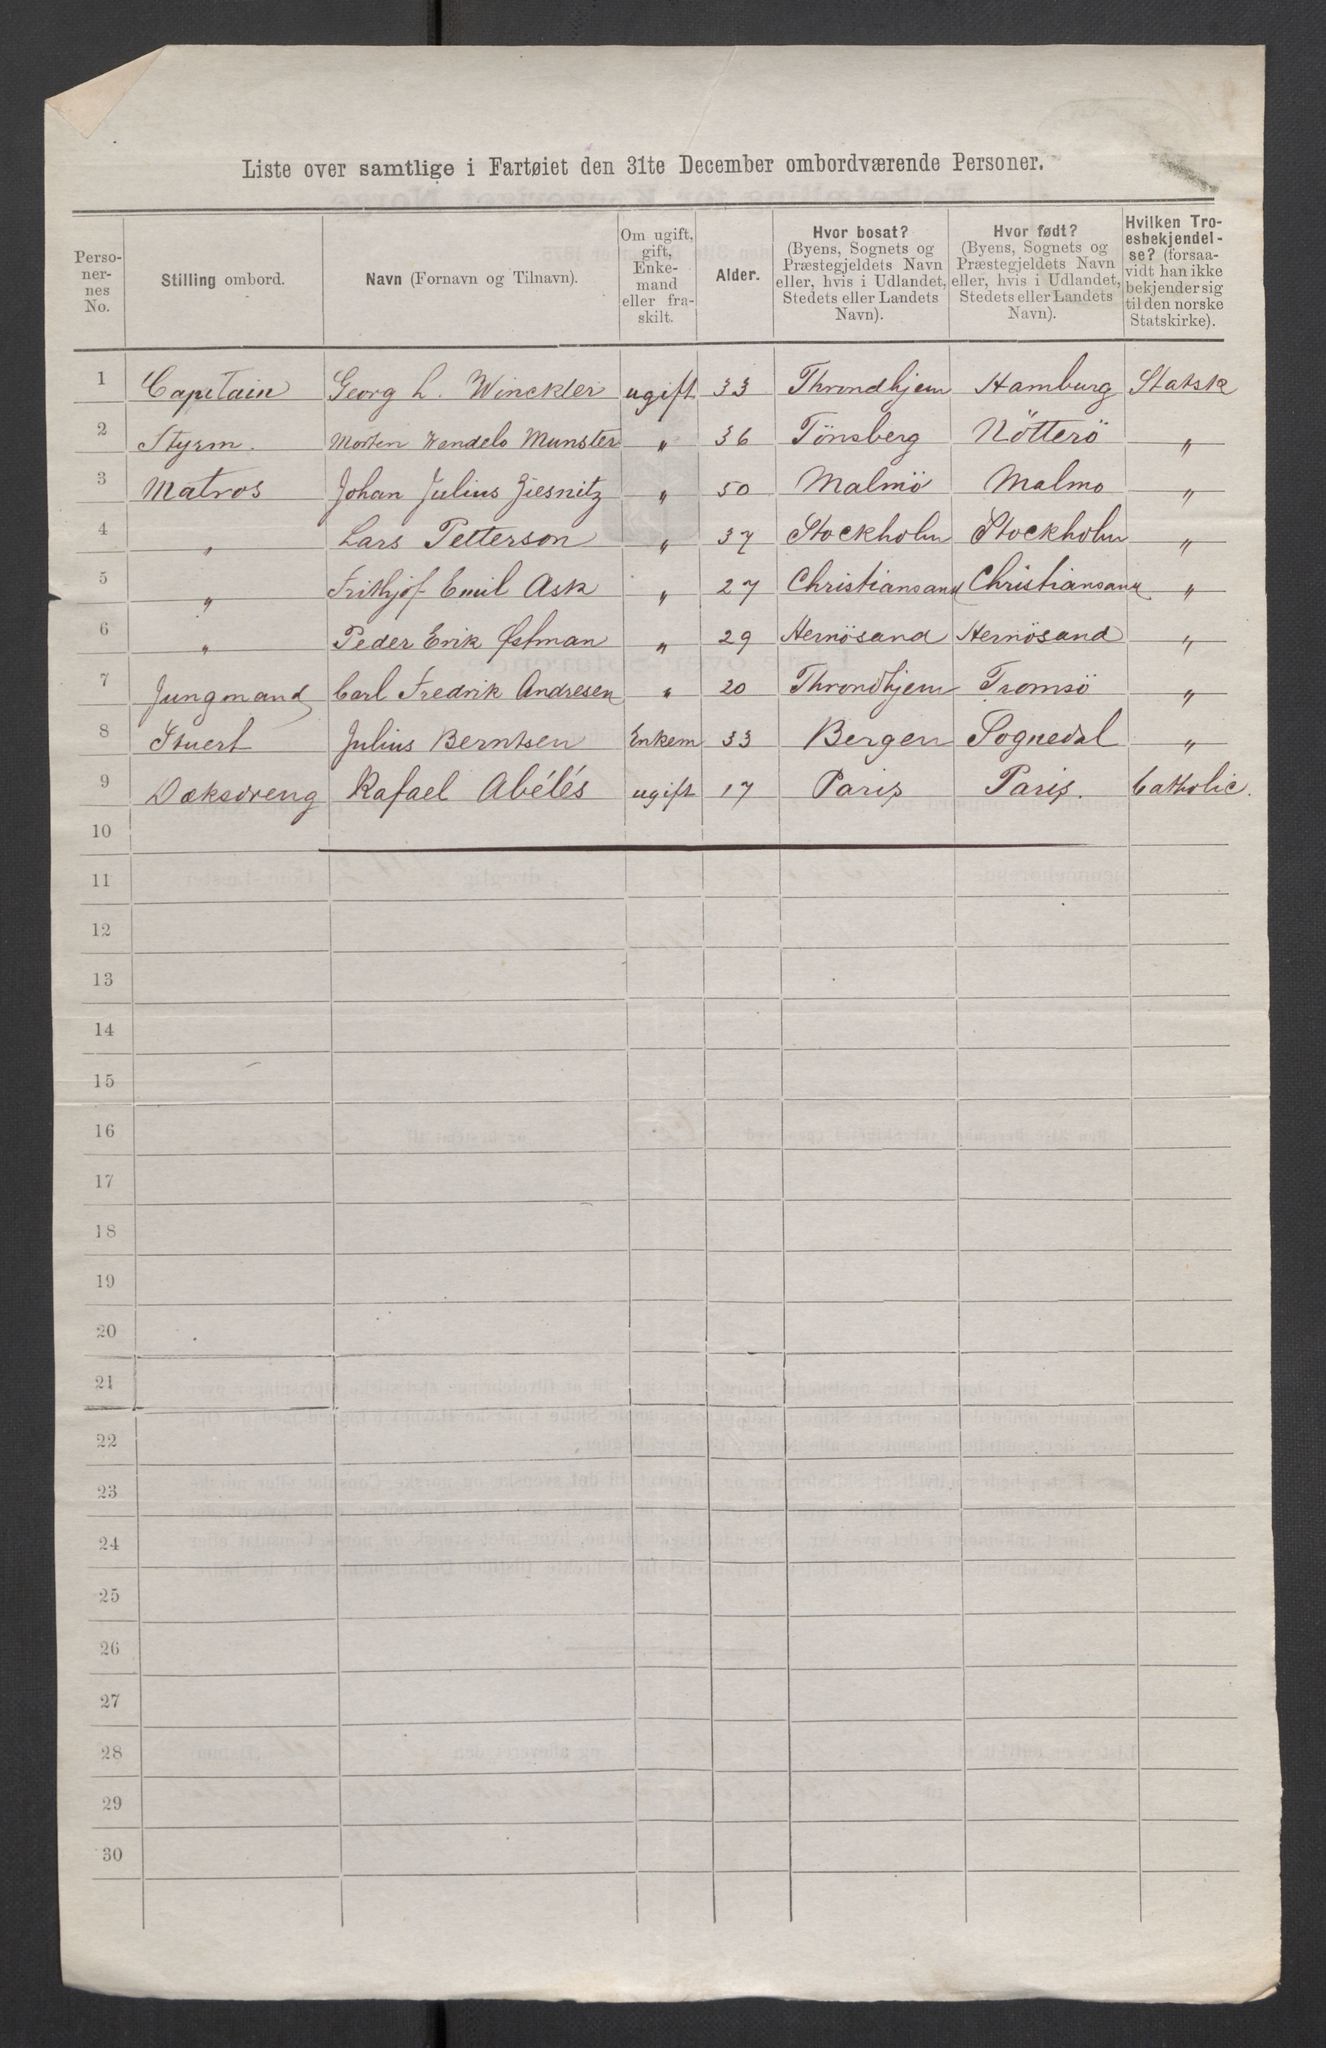 Liste over samtlige i Fartøiet den 31te December ombordværende Personer.
Perso-
ner-
nes
No.
Stilling ombord.
Navn (Fornavn og Tilnavn).
Om ugift,
gift,
Enke-
mand
eller fra-
skilt.
Alder.
Hvor bosat?
(Byens, Sognets og
Præstegjeldets Navn
eller, hvis i Udlandet,
Stedets eller Landets
Navn).
Hvor født?
(Byens, Sognets og
Præstegjeldets Navn
eller, hvis i Udlandet,
Stedets eller Landets
Navn).
Hvilken Tro-
esbekjendel-
se? (forsaa-
vidt han ikke
bekjender sig
til den norske
Statskirke).
1 Capitain Georg L. Winckler ugift 33 Throndhjem Hamburg Statsk
2 Styrm. Morten Wendelo Munster " 36 Tönsberg Nötterö "
3 Matros Johan Julius Ziesnitz " 50 Malmö Malmo "
4 " Lars Petterson " 37 Stockholm Stockholm "
5 " Frithjof Emil Ask " 27 Christiansand Christiansand "
6 " Peder Erik Østman " 29 Hernösand Hernösand "
7 Jungmand Carl Fredrik Andresen " 20 Throndhjem Tromsö "
8 Stuert Julius Berntsen Enkem 33 Bergen Sognedal "
9 Dæksdreng Rafael Abélés ugift 17 Paris Paris. Catholic.
10
11
12
13
14
15
16
17
18
19
20
21
22
23
24
25
26
27
28
29
30